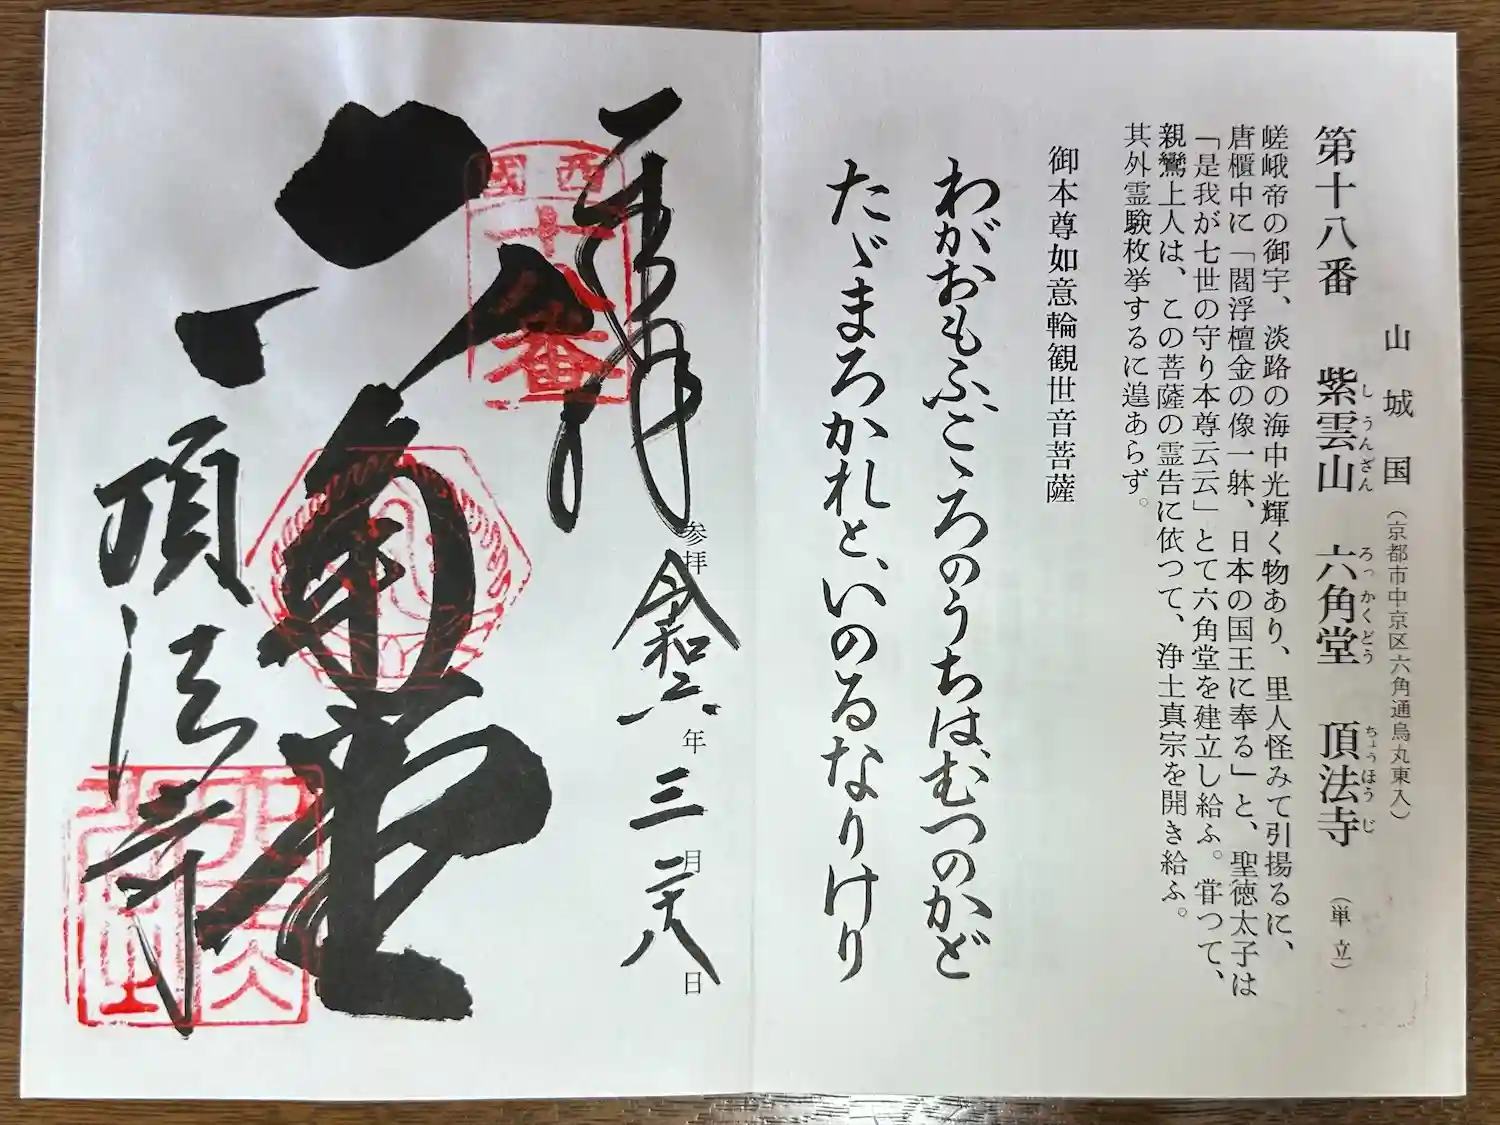 山城国（京都市中京区六角通烏丸東入）
第十八番 紫雲山 六角堂 頂法寺（単立）
しうんざん ろっかくどう ちょうほうじ
嵯峨帝の御宇、淡路の海中光輝く物あり、里人怪みて引揚るに、
唐櫃中に「閻浮檀金の像一躰、日本の国王に奉る」と、聖徳太子は
「是我が七世の守り本尊云云」とて六角堂を建立し給ふ。甞つて、
親鸞上人は、この菩薩の霊告に依つて、浄土真宗を開き給ふ。
其外霊験枚挙するに遑あらず。
御本尊如意輪観世音菩薩
わがおもふ、こゝろのうちは、むつのかど
たゞまろかれと、いのるなりけり
奉拝
参拝 令和六年 三月 二十八日
西國
十八番
六角堂
頂法寺